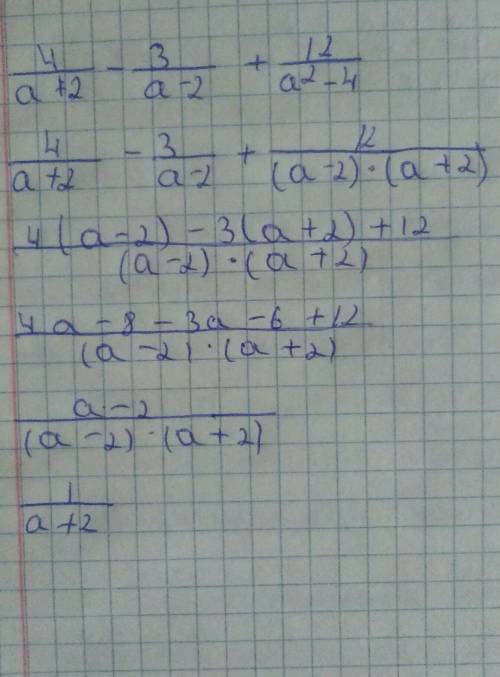 4/(a+2) - 3/(a-2) + 12/(a²-4)
4/(a+2) - 3/(a-2) + 12/((a-2)·(a+2))
(4(a-2) - 3(a+2) + 12)/((a-2)·(a+2))
(4a - 8 - 3a - 6 + 12)/((a-2)·(a+2))
(a-2)/((a-2)·(a+2))
1/(a+2)